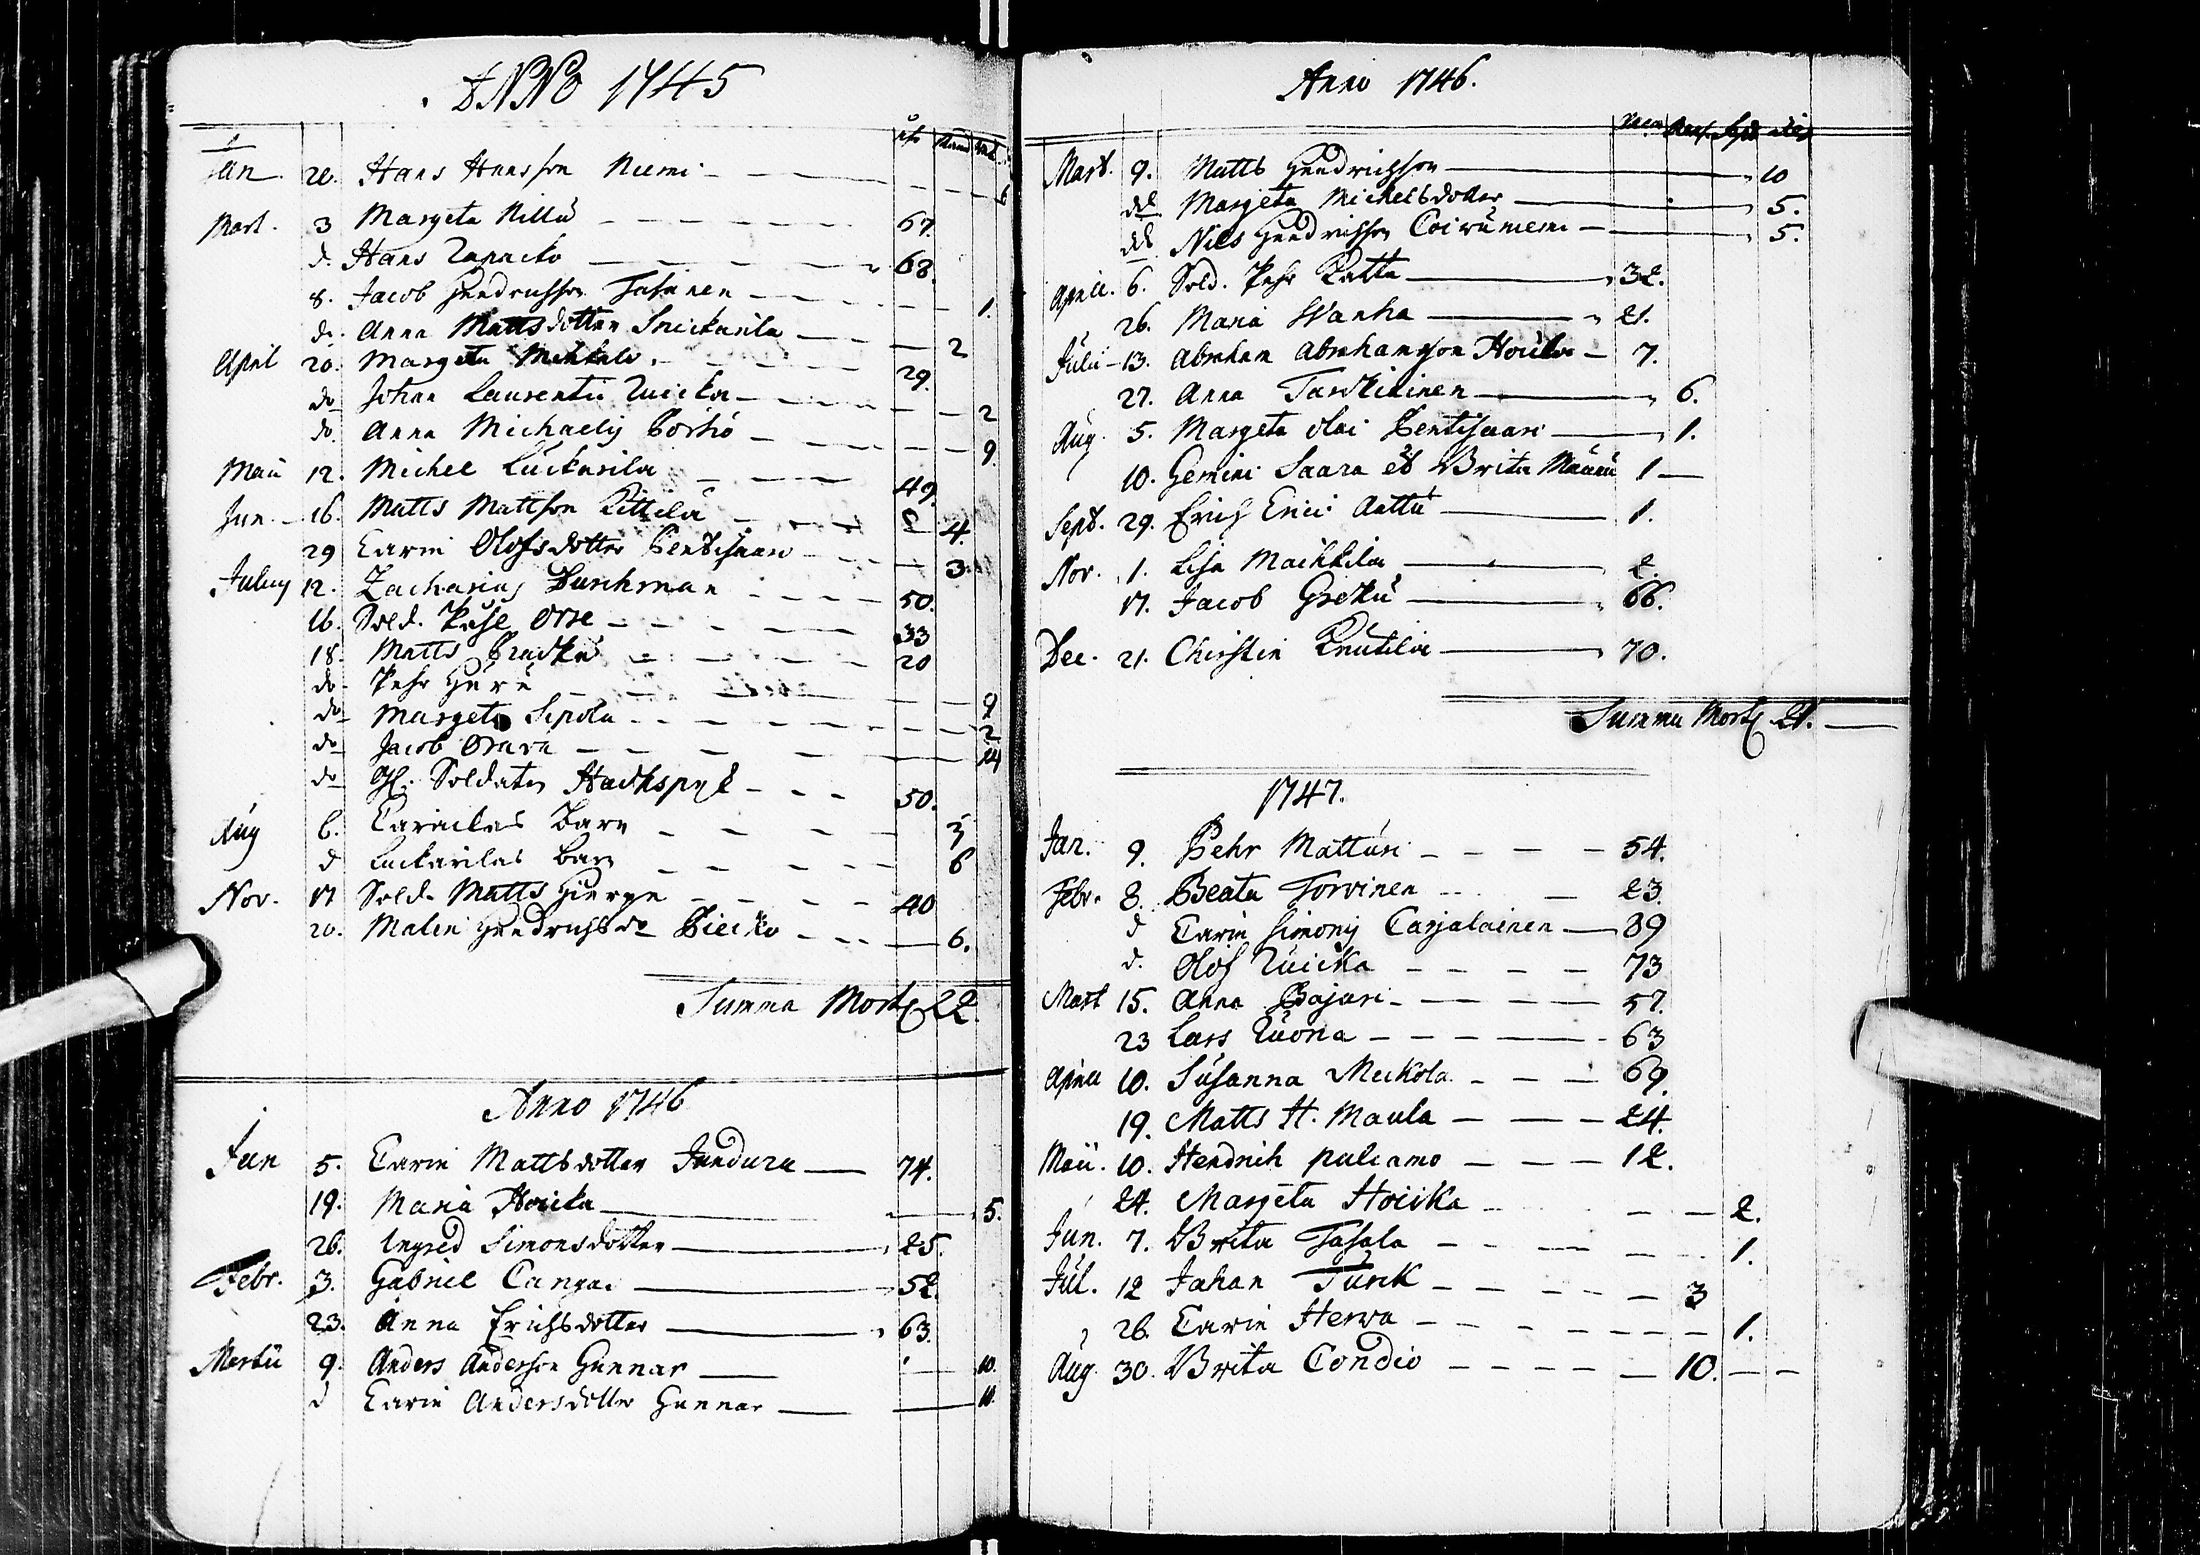 ANNO 1745
Jan. 20. Hans Hansson Niemi 6
Mart. 3 Margeta Nillu 67.
d. Hans 68.
8. Jacob Hendrichsson Tasanen 1.
d. Anna Mattsdotter 2
April 20. Margeta 29.
do Johan Laurentii Ruicka 2
do. Anna Michaelis 9
Maii 12. Michel Luckarila 49.
Jun. 16. Matts Mattson Kittilä 4.
29 Carin Olofsdotter Pentisaari 3.
Julius 12. Zacharias Burchman 50.
16. Sold. Orre 33
18. Matts 20
do. Pehr 9
do Margeta Sipola 2
do Jacob Orava 14
do Gl. Soldaten 50.
Aug 6. Barn 5
d Luckarilas barn 6
Nov. 17 Sold. Matts 40
20. Malin Hendrichsdr 6.
Summa Mort. 22.
Anno 1746
Jan 5. Carin Mattsdotter 74.
19. Maria Houika 5.
26. Ingred Simonsdotter 25.
Febr. 3. Gabriel Cangas 52.
23. Anna Erichsdotter 63.
Martii 9. Anders Anderson Gunnar 10.
d Carin Andersdotter Gunnar 11.
Anno 1746.
Mart. 9. Matts Hendrichsson 10
dd Margeta Michelsdotter 5.
dd Nils Hendrichsson Coivuniemi 5.
Aprill. 6. Sold. Pehr 32.
26. Maria Wanha 21.
Julii 13. Abraham Abrahamson 7.
27. Anna Tarkiainen 6.
Aug. 5. Margeta Olai Pentisaari 1.
10. Gemini Saara et Brita 1
Sept. 29. Erich Erici 1.
Nov. 1. Lisa 2.
17. Jacob 66.
Dec. 21. Christin Knutila 70.
Summa Mort. 21.
1747.
Jan. 9. Pehr Mattusi 54.
Febr. 8. Beata Torvinen 23.
d Carin Simonis Carjalainen 39
d. Olof Ruicka 73
Mart 15. Anna Pajari 57.
23 Lars Ruona 63
Aprill 10. Susanna Meckola 69.
19. Matts H. Maula 24.
Maii. 10. Hendrich palcamo 12.
24. Margeta Hoicka 2.
Jun. 7. Brita Tasala 1.
Jul. 12 Johan Turck 3
26. Carin Herva 1.
Aug. 30. Brita Condio 10.